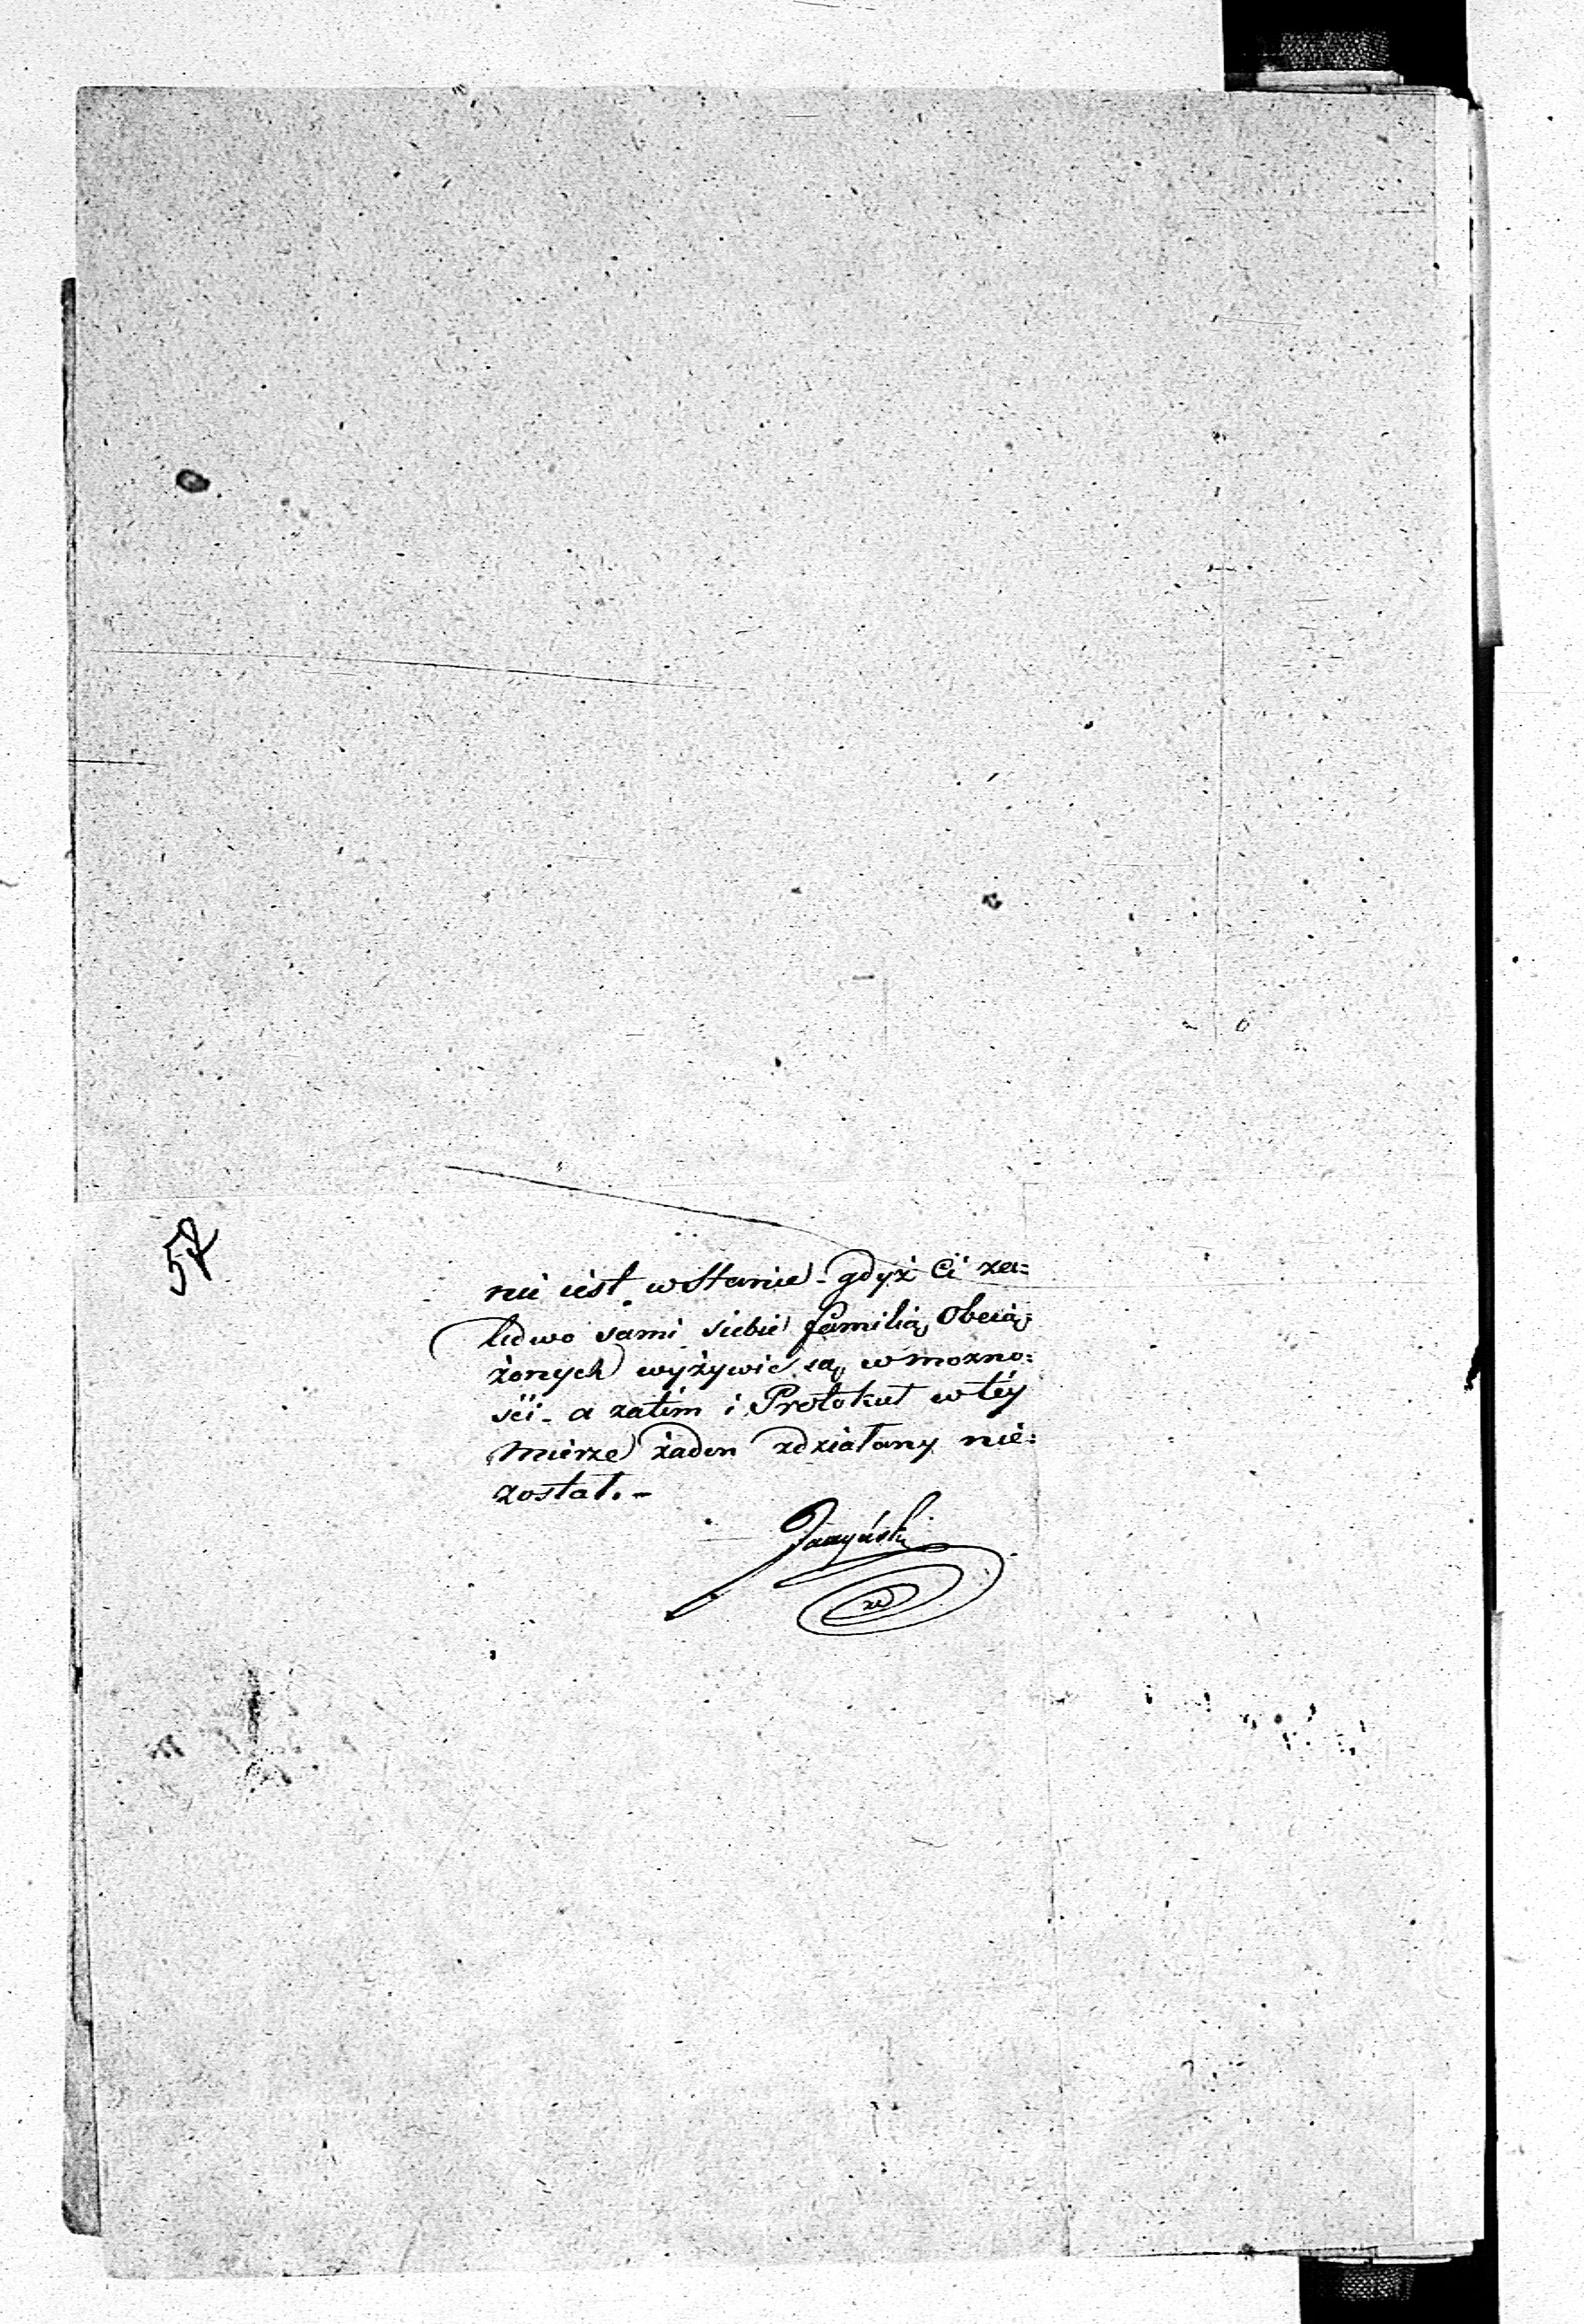 57
nie iest w Stanie - gdyż Ci za=
ledwo sami siebie familią Obcią=
żonych wyżywić są w możno=
ści - a zatém i Protokuł w téy
mierze żaden zdziałany nie=
został. -